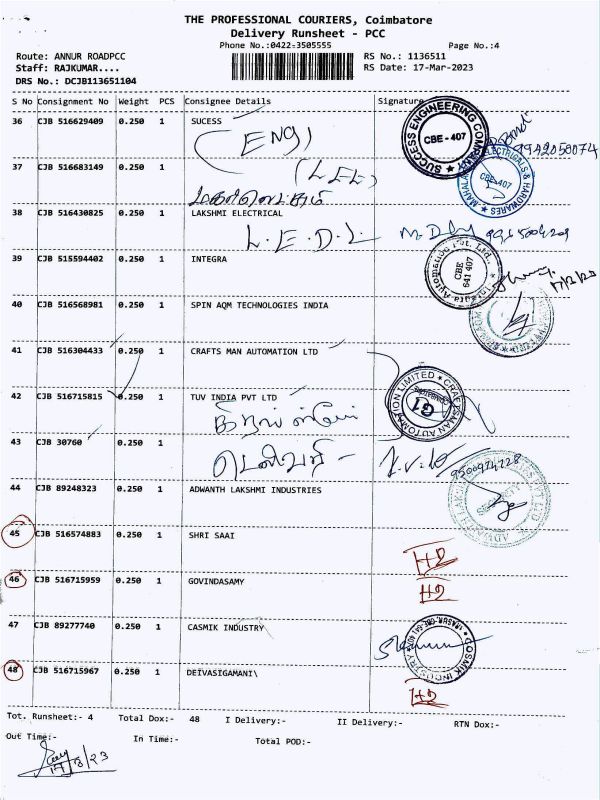 THE PROFESSIONAL COURIERS, Coimbatore
Delivery Runsheet - PCC
Phone No.:0422-3505555
Page No.:4
Route: ANNUR ROADPCC
RS No.: 1136511
Staff: RAJKUMAR....
RS Date: 17-Mar-2023
DRS No.: DCJB113651104
S No Consignment No Weight PCS Consignee Details Signature
36 CJB 516629409 0.250 1 SUCESS
SUCCESS ENGINEERING COMPANY
CBE - 407
9942050074
37 CJB 516683149 0.250 1
CBE-407
38 CJB 516430825 0.250 1 LAKSHMI ELECTRICAL
39 CJB 515594402 0.250 1 INTEGRA
CBE
641 407
40 CJB 516568981 0.250 1 SPIN AQM TECHNOLOGIES INDIA
41 CJB 516304433 0.250 1 CRAFTS MAN AUTOMATION LTD
42 CJB 516715815 0.250 1 TUV INDIA PVT LTD
CRAFTSMAN AUTOMATION LIMITED
G1
43 CJB 30760 0.250 1
9500974228
44 CJB 89248323 0.250 1 ADWANTH LAKSHMI INDUSTRIES
45 CJB 516574883 0.250 1 SHRI SAAI
46 CJB 516715959 0.250 1 GOVINDASAMY
47 CJB 89277740 0.250 1 CASMIK INDUSTRY
COSMIK INDUSTRY
48 CJB 516715967 0.250 1 DEIVASIGAMANI\
Tot. Runsheet:- 4 Total Dox:- 48 I Delivery:- II Delivery:- RTN Dox:-
Out Time:- In Time:- Total POD:-
17/3/23